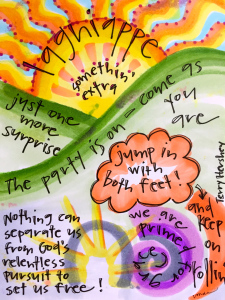 lagniappe
somethin'
extra
just one
more
surprise
The party is on – come as
you
are
jump in
with
both feet!
Terry Hershey
Nothing can
separate us
from God's
relentless
pursuit to
set us free!
we are
primed
and
keep
on
rollin